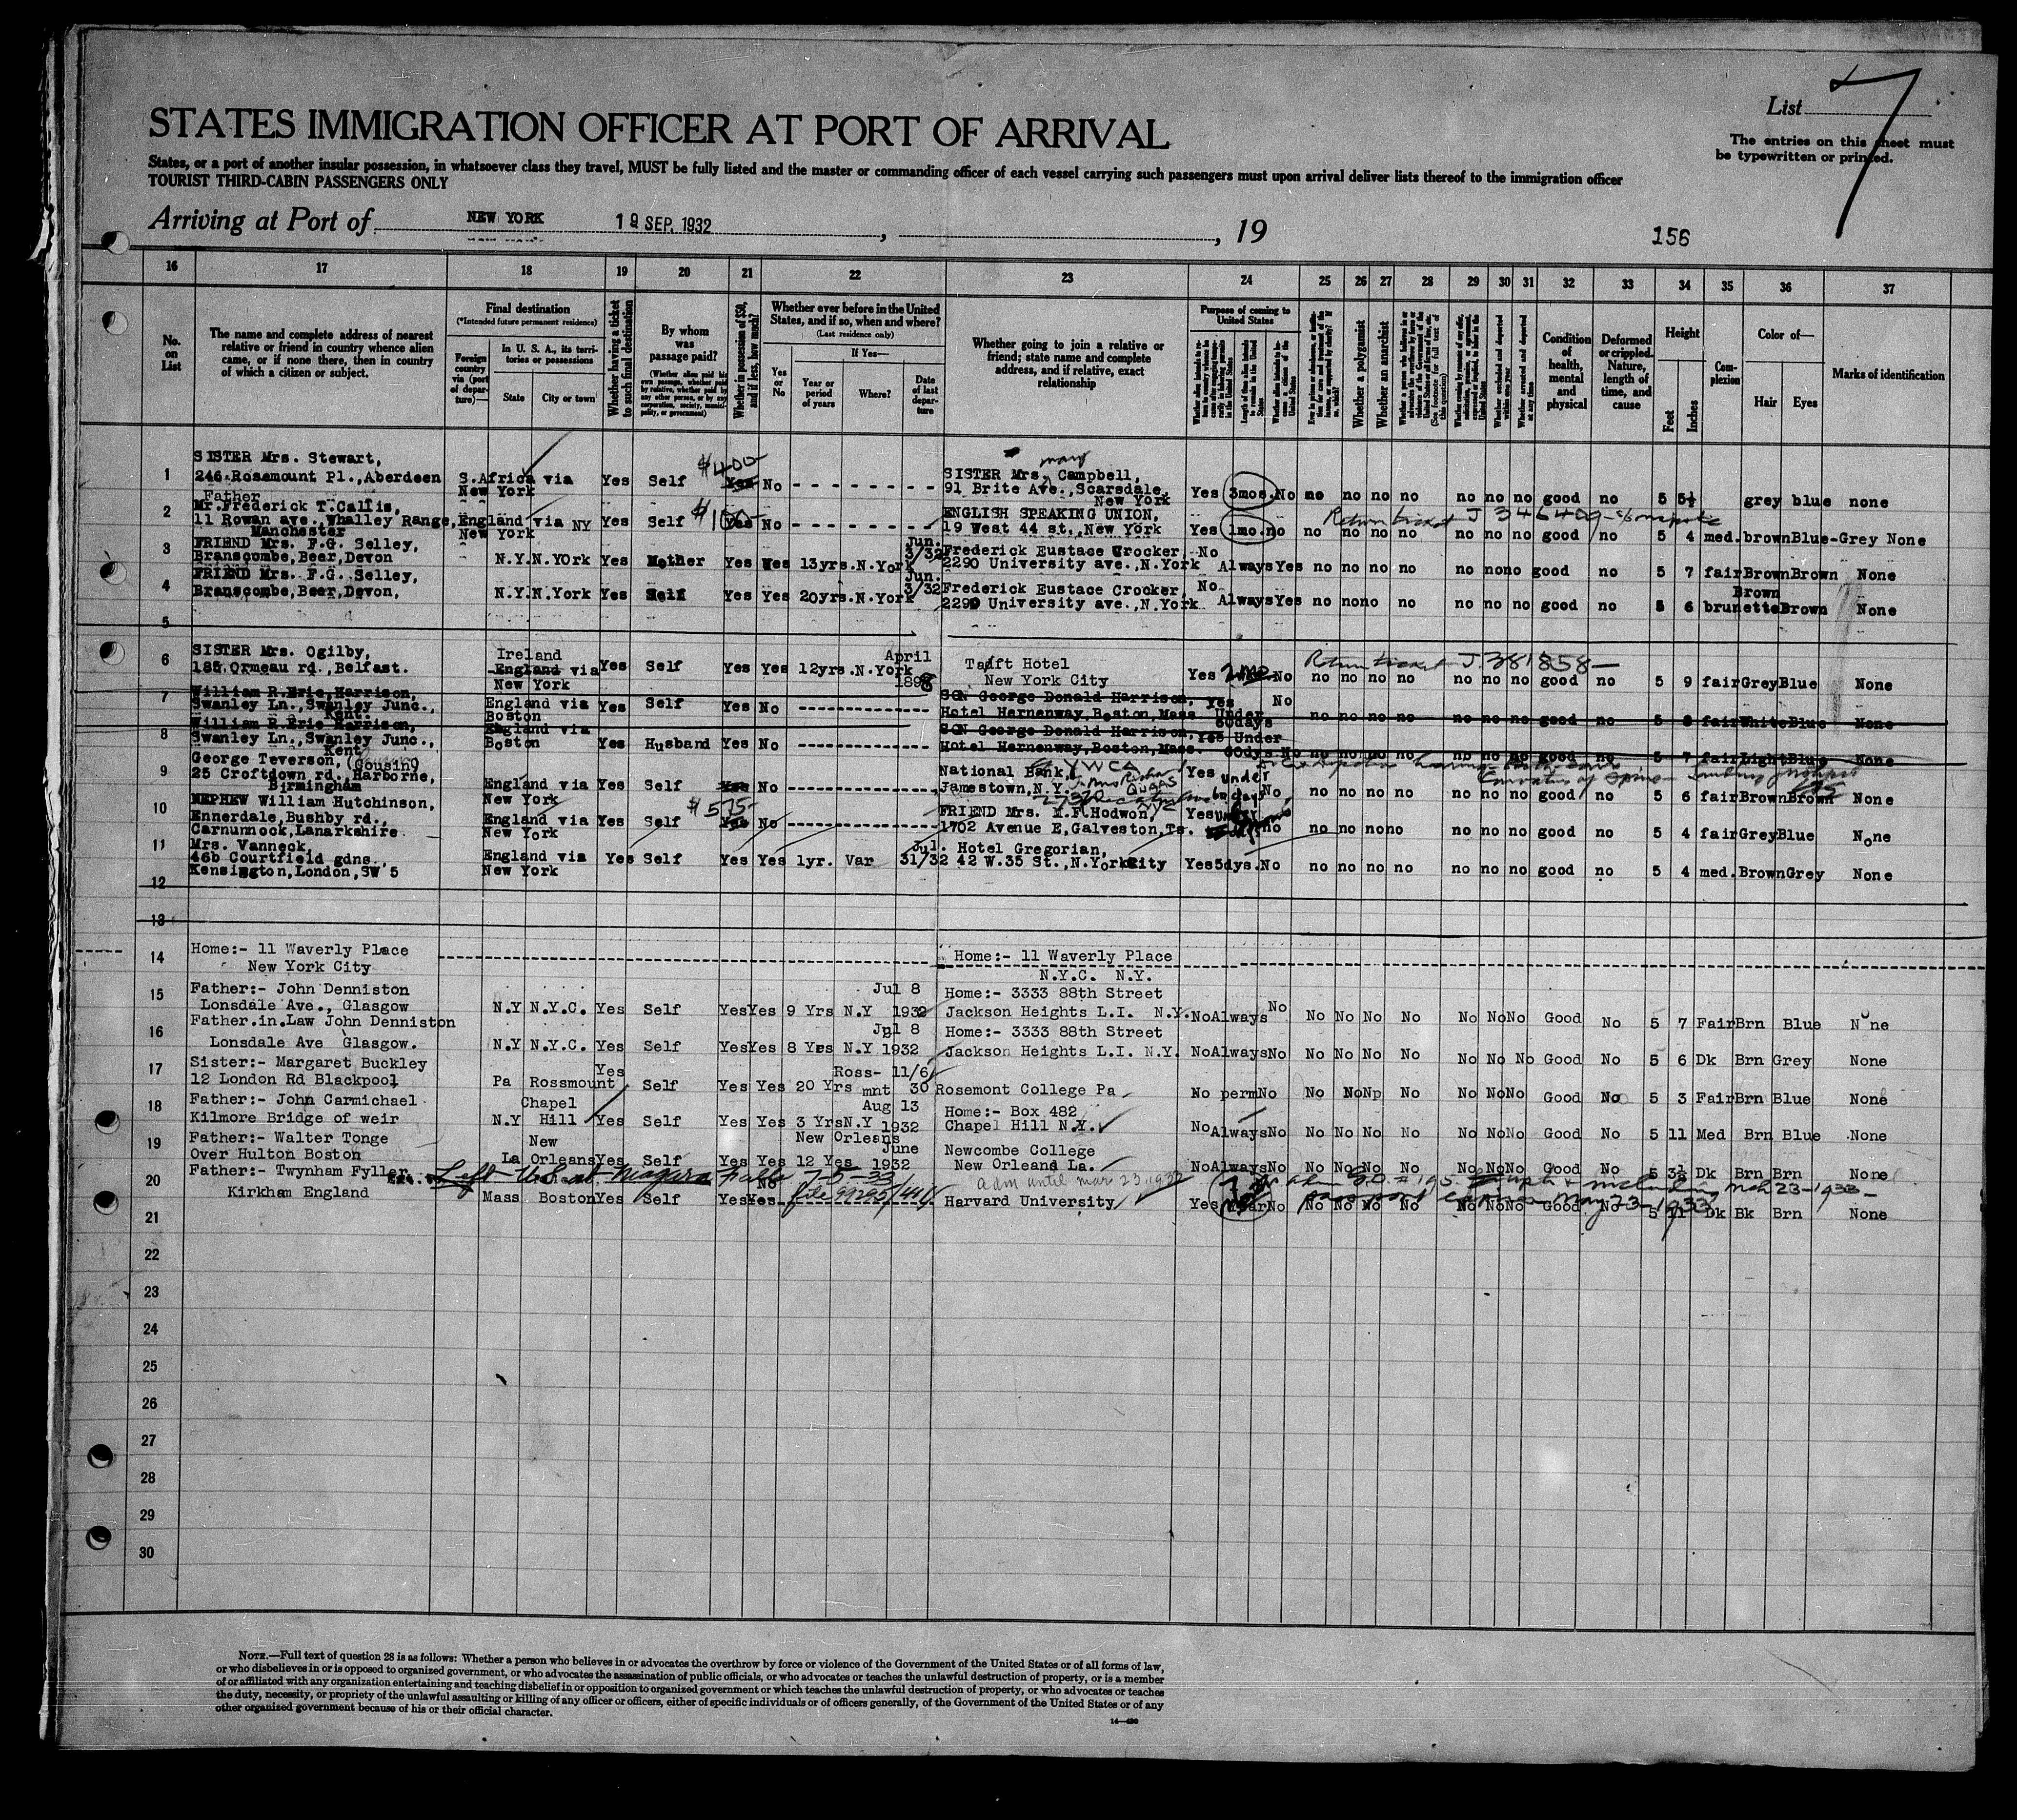 List 7
STATES IMMIGRATION OFFICER AT PORT OF ARRIVAL
The entries on this sheet must
be typewritten or printed.
States, or a port of another insular possession, in whatsoever class they travel, MUST be fully listed and the master or commanding officer of each vessel carrying such passengers must upon arrival deliver lists thereof to the immigration officer
TOURIST THIRD-CABIN PASSENGERS ONLY
Arriving at Port of NEW YORK 19 SEP. 1932 , , 19
156
16 17 18 19 20 21 22 23 24 25 26 27 28 29 30 31 32 33 34 35 36 37
No. on List
The name and complete address of nearest
relative or friend in country whence alien
came, or if none there, then in country
of which a citizen or subject.
Final destination
(*Intended future permanent residence)
Foreign country via (port of departure)—
In U. S. A., its territories or possessions
State
City or town
Whether having a ticket to such final destination
By whom was passage paid?
(Whether alien paid his own passage, whether paid by relative, whether paid by any other person, or by any corporation, society, municipality, or government)
Whether in possession of $50, and if less, how much?
Whether ever before in the United
States, and if so, when and where?
(Last residence only)
Yes or No
If Yes—
Year or period of years
Where?
Date of last departure
Whether going to join a relative or
friend; state name and complete
address, and if relative, exact
relationship
Purpose of coming to United States
Whether a polygamist
Whether an anarchist
Condition of health, mental and physical
Deformed or crippled. Nature, length of time, and cause
Height
Feet
Inches
Complexion
Color of—
Hair
Eyes
Marks of identification
SISTER Mrs. Stewart,
1 246 Rosemount Pl., Aberdeen S. Africa via New York Yes Self $400 Yes No SISTER Mrs. Mary Campbell, 91 Brite Ave., Scarsdale, New York Yes 3mos. No no no no no no no no good no 5 5½ grey blue none
Father
2 Mr. Frederick T. Callis, 11 Rowan ave., Whalley Range, Manchester England via NY New York Yes Self Yes No ENGLISH SPEAKING UNION, 19 West 44 st., New York Yes 1mo. no no no no no no no no good no 5 4 med. brown Blue-Grey None
Return ticket J 346409
3 FRIEND Mrs. F.G. Selley, Branscombe, Beer, Devon N.Y. N.YOrk Yes Mother Yes Yes 13yrs. N.York Jun. 3/32 Frederick Eustace Crocker, 2290 University ave., N.York No Always Yes no no no no no no no good no 5 7 fair Brown Brown None
4 FRIEND Mrs. F.G. Selley, Branscombe, Beer, Devon, N.Y. N.York Yes Self Yes Yes 20yrs. N.York Jun. 3/32 Frederick Eustace Crocker, 2290 University ave., N.York No Always Yes no no no no no no no good no 5 6 brunette Brown Brown None
5
6 SISTER Mrs. Ogilby, 185, Ormeau rd., Belfast. Ireland England via New York Yes Self Yes Yes 12yrs. N.York April 1898 Taft Hotel New York City Yes No no no no no no no no good no 5 9 fair Grey Blue None
Return ticket J. 381858—
7 William R. Eric, Harrison, Swanley Ln., Swanley Junc., Kent. England via Boston Yes Self Yes No SON George Donald Harrison, Hotel Hernenway, Boston, Mass. Yes Under 60days No no no no no no no no good no 5 fair White Blue None
8 William R. Eric Harrison, Swanley Ln., Swanley Junc., Kent England via Boston Yes Husband Yes No SON George Donald Harrison, Hotel Hernenway, Boston, Mass. Yes Under 60dys. No no no no no no no no good no 5 7 fair Light Blue None
9 George Teverson, (Cousin) 25 Croftdown rd., Harborne, Birmingham England via New York Yes Self Yes No National Bank, Jamestown, N.Y. YWCA Yes under No no no no no no no no good no 5 6 fair Brown Brown None
10 NEPHEW William Hutchinson, Ennerdale, Bushby rd., Carnunnock, Lanarkshire England via New York Yes Self $575 Yes No FRIEND Mrs. M.F. Hodwon, 1702 Avenue E, Galveston, Ts. Yes no no no no no no no no good no 5 4 fair Grey Blue None
11 Mrs. Vanneck, 46b Courtfield gdns., Kensington, London, SW 5 England via New York Yes Self Yes Yes 1yr. Var Jul. 31/32 Hotel Gregorian, 42 W.35 St., N.York City Yes 5dys. No no no no no no no no good no 5 4 med. Brown Grey None
12
13
14 Home:- 11 Waverly Place New York City Home:- 11 Waverly Place N.Y.C. N.Y.
15 Father:- John Denniston Lonsdale Ave., Glasgow N.Y N.Y.C. Yes Self Yes Yes 9 Yrs N.Y Jul 8 1932 Home:- 3333 88th Street Jackson Heights L.I. N.Y. No Always No No No No No No No No Good No 5 7 Fair Brn Blue None
16 Father.in.Law John Denniston Lonsdale Ave Glasgow. N.Y N.Y.C. Yes Self Yes Yes 8 Yrs N.Y Jul 8 1932 Home:- 3333 88th Street Jackson Heights L.I. N.Y. No Always No No No No No No No No Good No 5 6 Dk Brn Grey None
17 Sister:- Margaret Buckley 12 London Rd Blackpool Pa Rossmount Yes Self Yes Yes 20 Yrs Ross-mnt 11/6/30 Rosemont College Pa No perm No No No Np No No No No Good No 5 3 Fair Brn Blue None
18 Father:- John Carmichael Kilmore Bridge of weir N.Y Chapel Hill Yes Self Yes Yes 3 Yrs N.Y Aug 13 1932 Home:- Box 482 Chapel Hill N.Y. No Always No No No No No No No No Good No 5 11 Med Brn Blue None
19 Father:- Walter Tonge Over Hulton Boston La New Orleans Yes Self Yes Yes 12 Yes New Orleans June 1932 Newcombe College New Orleans La. No Always No No No No No No No No Good No 5 3½ Dk Brn Brn None
Left U.S. at Niagara Falls 7-5-33
adm until mar 23 1933
20 Father:- Twynham Fyller Kirkham England Mass Boston Yes Self Yes No file 99295/441 Harvard University Yes No No No No No No No No Good No 5 11 Dk Bk Brn None
passport expires May 23-1933
21
22
23
24
25
26
27
28
29
30
NOTE.—Full text of question 28 is as follows: Whether a person who believes in or advocates the overthrow by force or violence of the Government of the United States or of all forms of law,
or who disbelieves in or is opposed to organized government, or who advocates the assassination of public officials, or who advocates or teaches the unlawful destruction of property, or is a member
of or affiliated with any organization entertaining and teaching disbelief in or opposition to organized government or which teaches the unlawful destruction of property, or who advocates or teaches
the duty, necessity, or propriety of the unlawful assaulting or killing of any officer or officers, either of specific individuals or of officers generally, of the Government of the United States or of any
other organized government because of his or their official character.
14—430